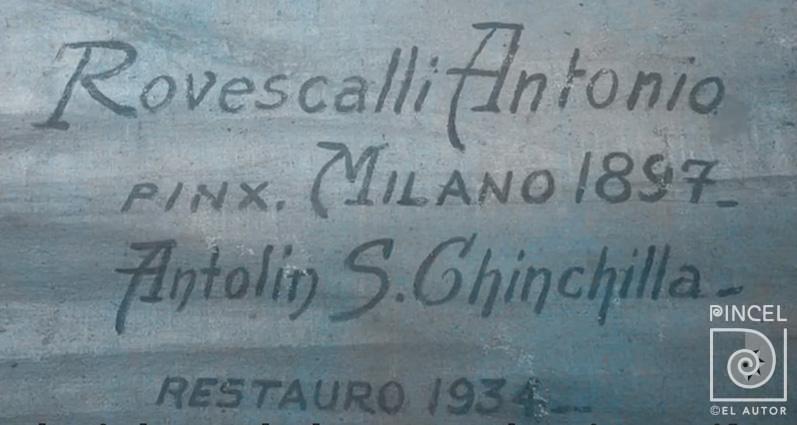 Rovescalli Antonio
PINX. MILANO 1897_
Antolin S. Chinchilla_
RESTAURO 1934_
PINCEL
©EL AUTOR